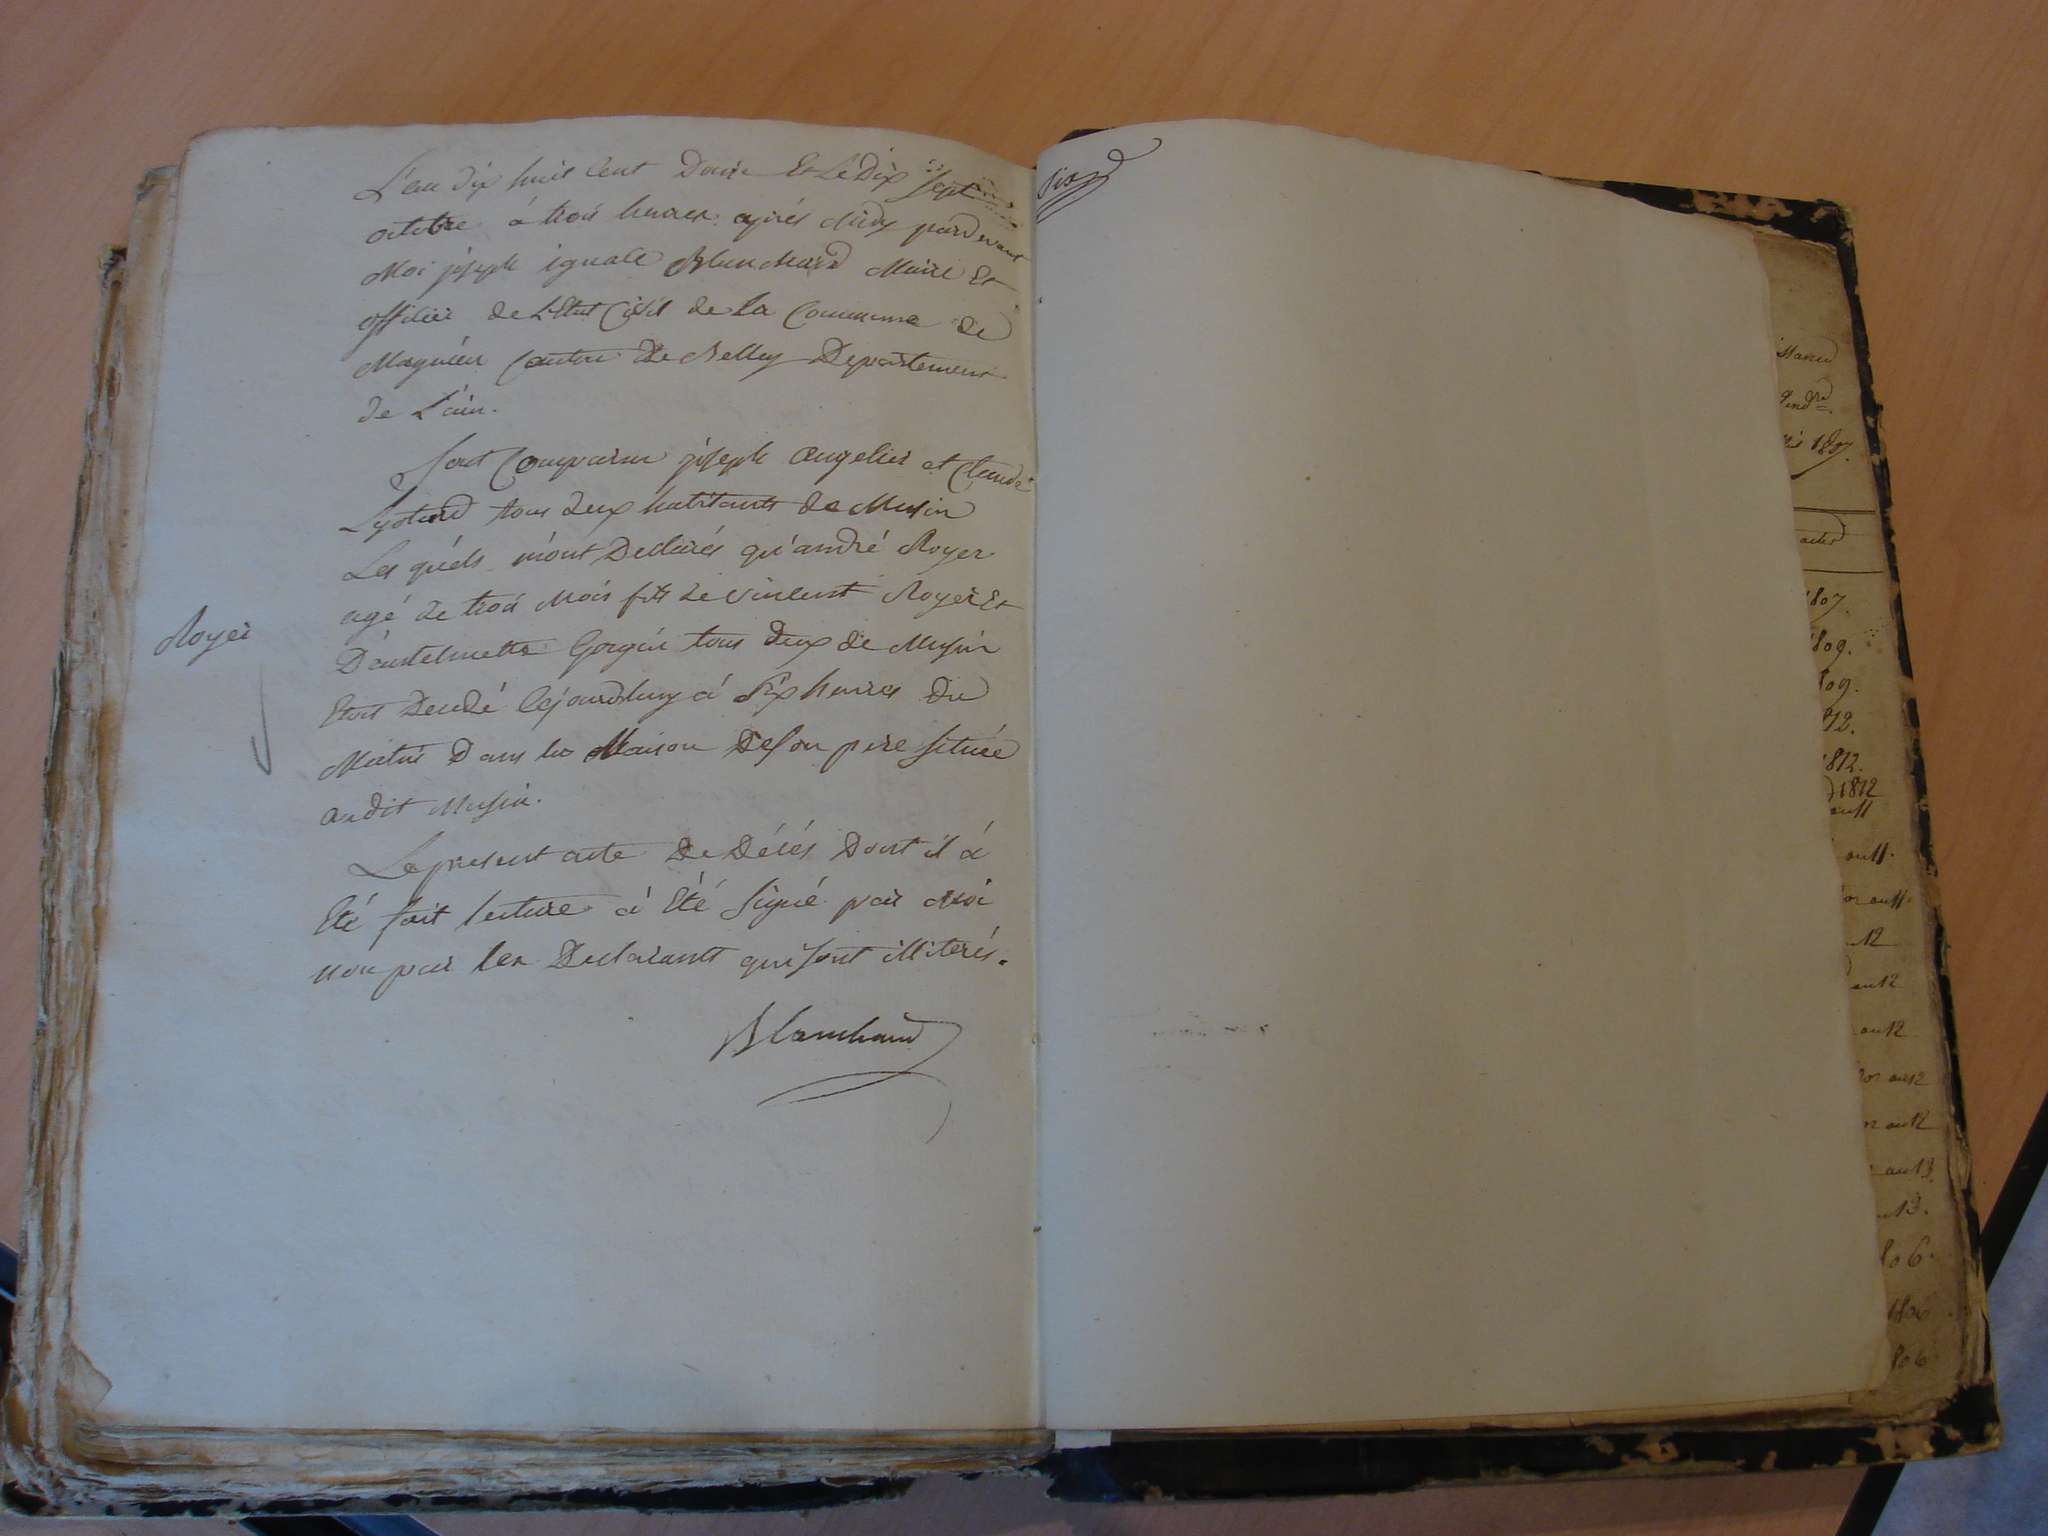 L'an dix huit Cent Douze Et Le Dix Sept
octobre à trois heures après Midy pardevant
Moi joseph ignace Blanchard Maire Et
officier de L'Etat Civil de La Commune de
Magnieu Canton De Belley Departement
de L'ain.
Sont Comparus joseph angelier et Claude
tous deux habitants de Musin
Les quels m'ont Declarés qu'andré Royer
agé de trois Mois fils de vincent Royer Et
Royer
tous deux de Musin
Etoit Decedé Cejourdhuy à Six heures Du
Matin Dans la Maison De Son pere Située
audit Musin.
Le present acte De Décés Dont il à
Eté fait lecture à Eté Signé par Moi
non par les Declarants qui sont illiterés.
Blanchard
Six
1807.
1809.
1812.
1812
an 11.
an 12
an 12
an 12
an 12
an 13.
1806